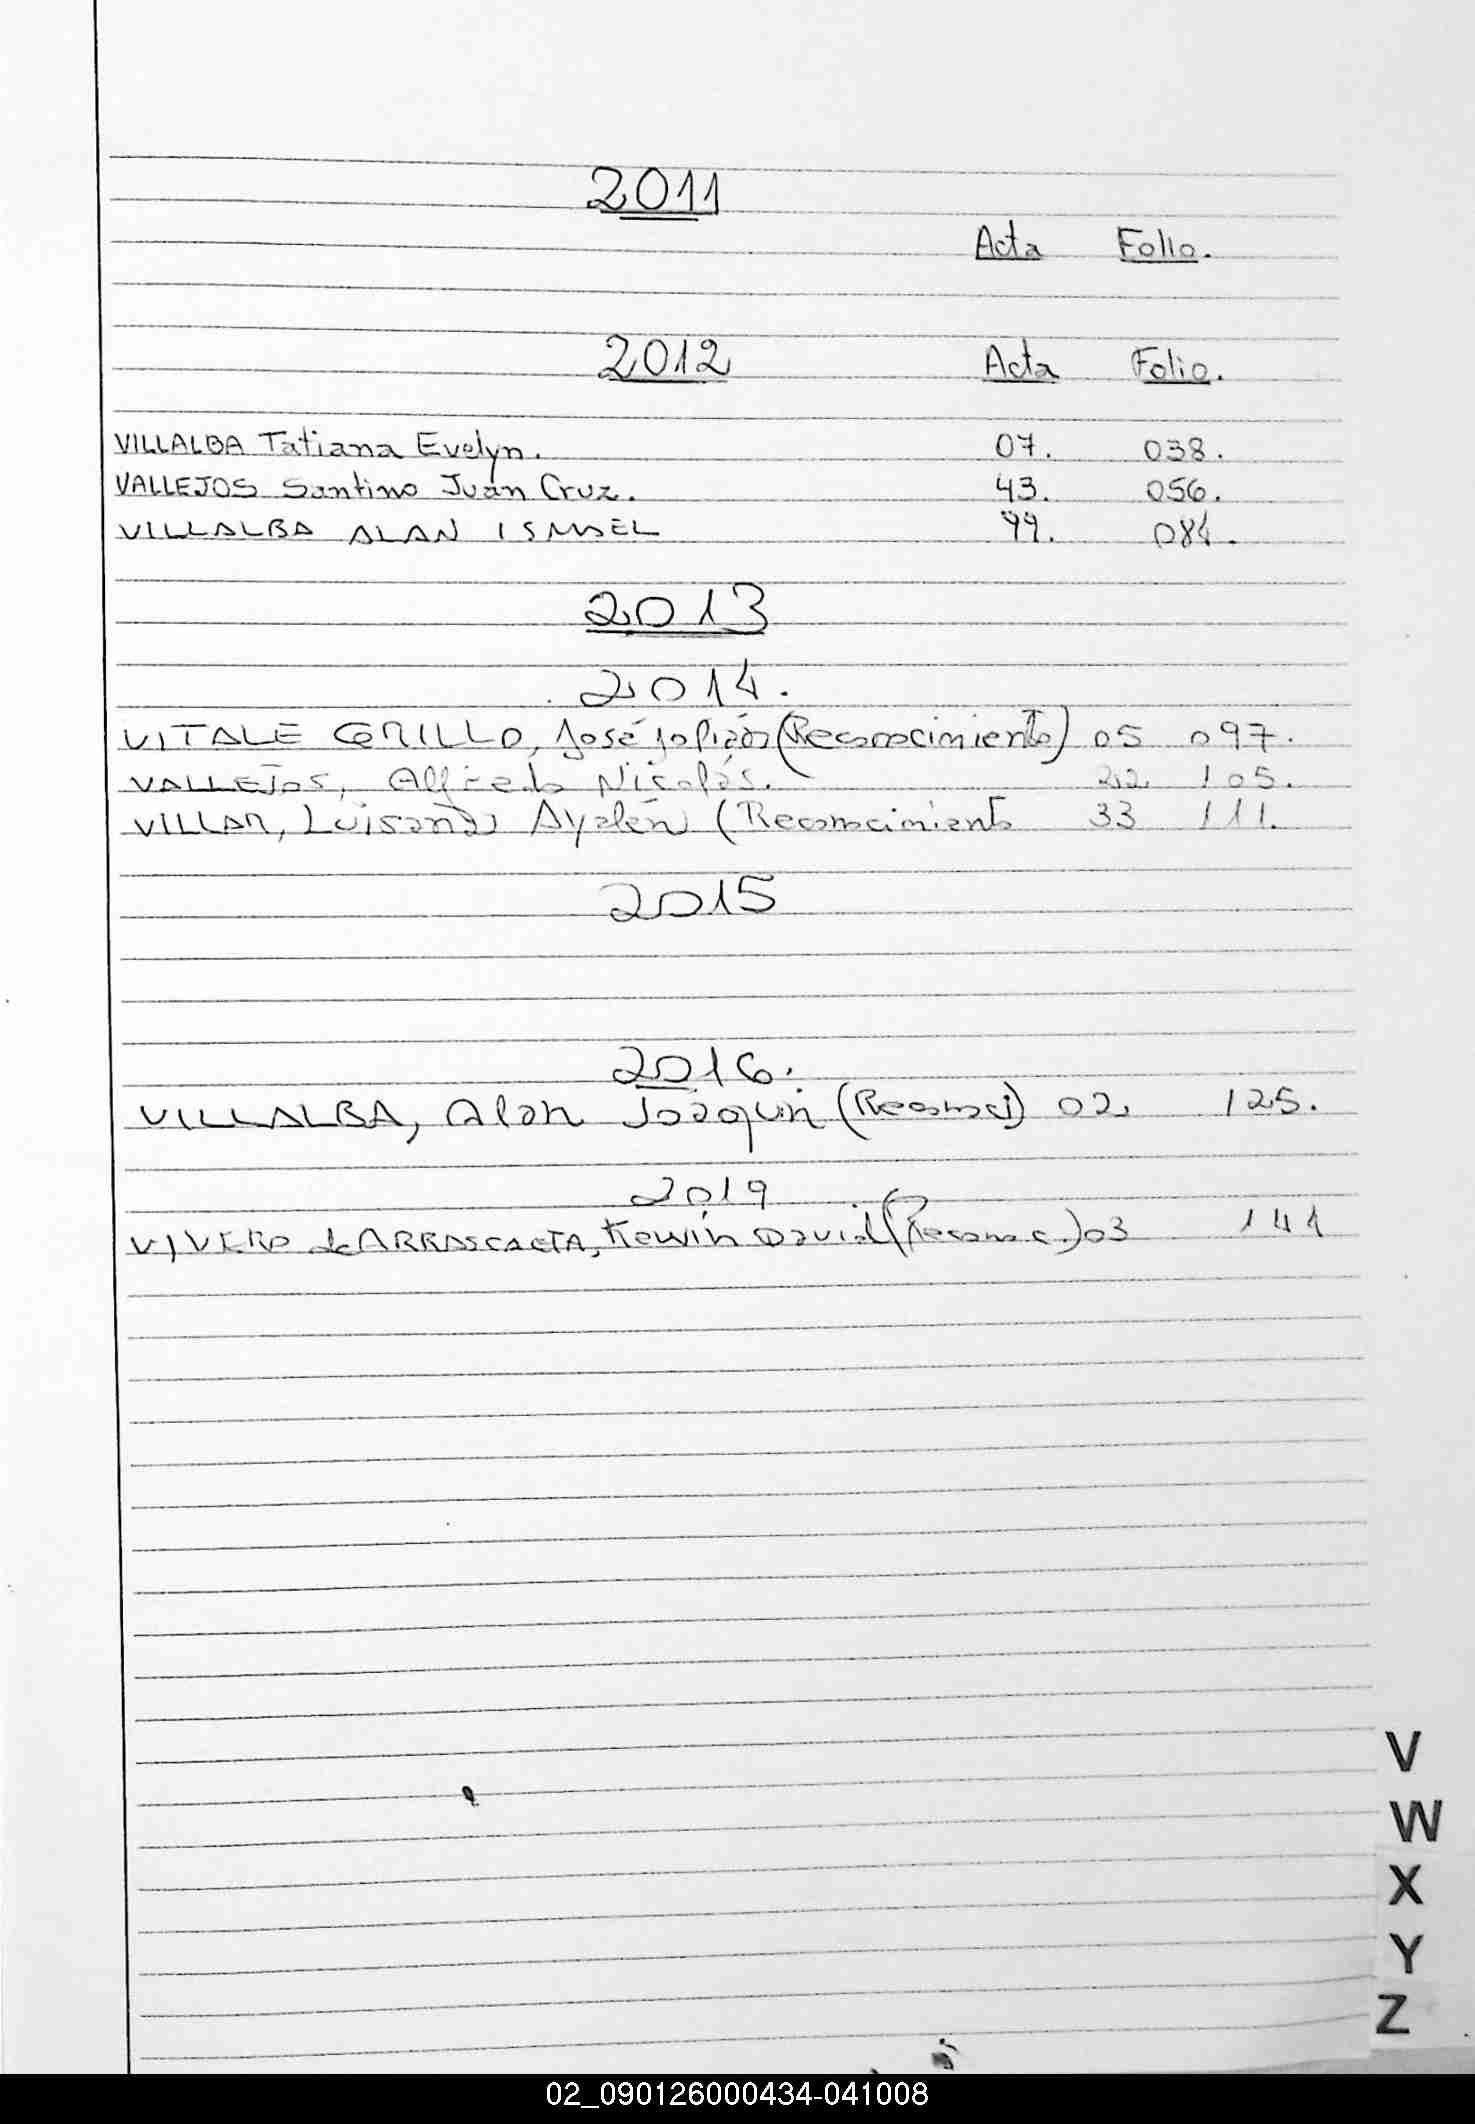 2011
Acta Folio.
2012 Acta Folio.
VILLALBA Tatiana Evelyn. 07. 038.
VALLEJOS Santino Juan Cruz. 43. 056.
VILLALBA ALAN ISMAEL 99. 084.
2013
2014.
VITALE GRILLO, José (Reconocimiento) 05 097.
VALLEJOS, Alfredo Nicolás. 22 105.
VILLAR, Luisana Ayelén (Reconocimiento 33 111.
2015
2016.
VILLALBA, Alan Joaquin (Reconoci) 02. 125.
2019
VIVERO de ARRASCAETA, Kewin David (Reconoc.) 03 141
V
W
X
Y
Z
02_090126000434-041008